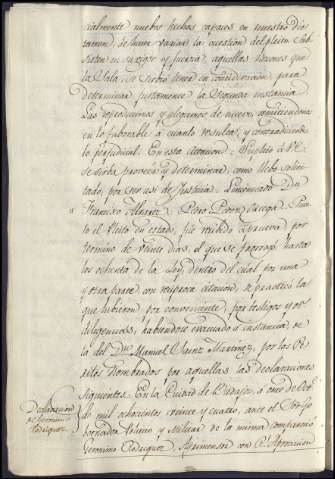 cialmente nuebos hechos capaces en nuestro dic
tamen de hacer variar la cuestion del pleito sub
sisten en su vigor y fuerza, aquellas razones que
la Sala se sirbio tener en consideracion para
determinar justamente la segunda instancia
Las reproducimos y alegamos de nuevo, remitiendonos
en lo faborable a cuanto resulta, y contradiciendo
lo perjudicial. En esta atencion. Suplico á V.E.
se sirba proveer y determinar como llebo solici
tado, por ser asi de Justicia. Licenciado Dn
Francisco Alvarez. Pedro Perez Juega. Pues
to el Pleito en estado, fué recibido a prueva por
termino de veinte dias el que se prorrogo hasta
los ochenta de la ley, dentro del cual por una
y otra parte, con reciproca citacion, se practicó la
que hubieron por combeniente, por testigos y
diligencias, habiendose evacuado á instancia de
la del Dn Manuel Saenz Martinez, por los Pe
ritos nombrados por aquellas las declaraciones
siguientes. En la Ciudad de Badajoz, á once de
de mil ochocientos veinte y cuatro, ante el Sor Go
bernador Politico y Militar de la misma comparecio
Geronimo Rodriguez, Agrimensor con Rl Aprovacion
Declaracion
de Geronimo
Rodriguez